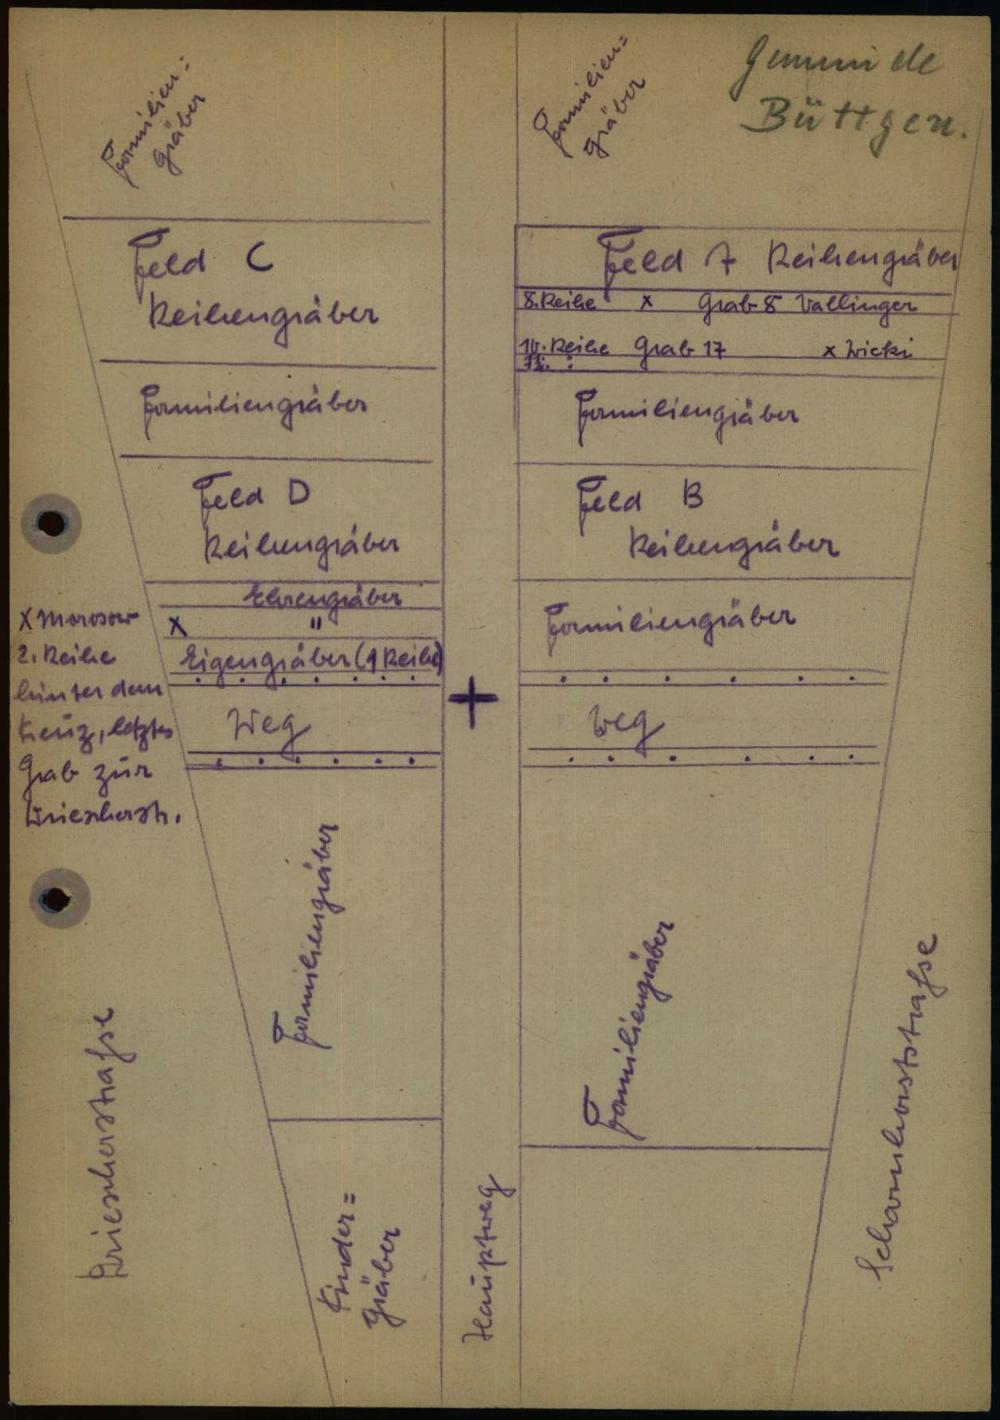 Gemeinde
Büttgen.
Familien=
gräber
Familien=
gräber
Feld C
Reihengräber
Feld A Reihengräber
8. Reihe x Grab 8 Vallinger
10. Reihe Grab 17 x Wicki
Familiengräber
Familiengräber
Feld D
Reihengräber
Feld B
Reihengräber
Ehrengräber
x "
Eigengräber (1 Reihe)
Familiengräber
X Morosow
2. Reihe
hinter dem
Kreuz, letztes
Grab zur
Driescherstr.
Weg
Weg
Familiengräber
Familiengräber
Driescherstraße
Scharnhorststraße
Kinder=
gräber
Hauptweg